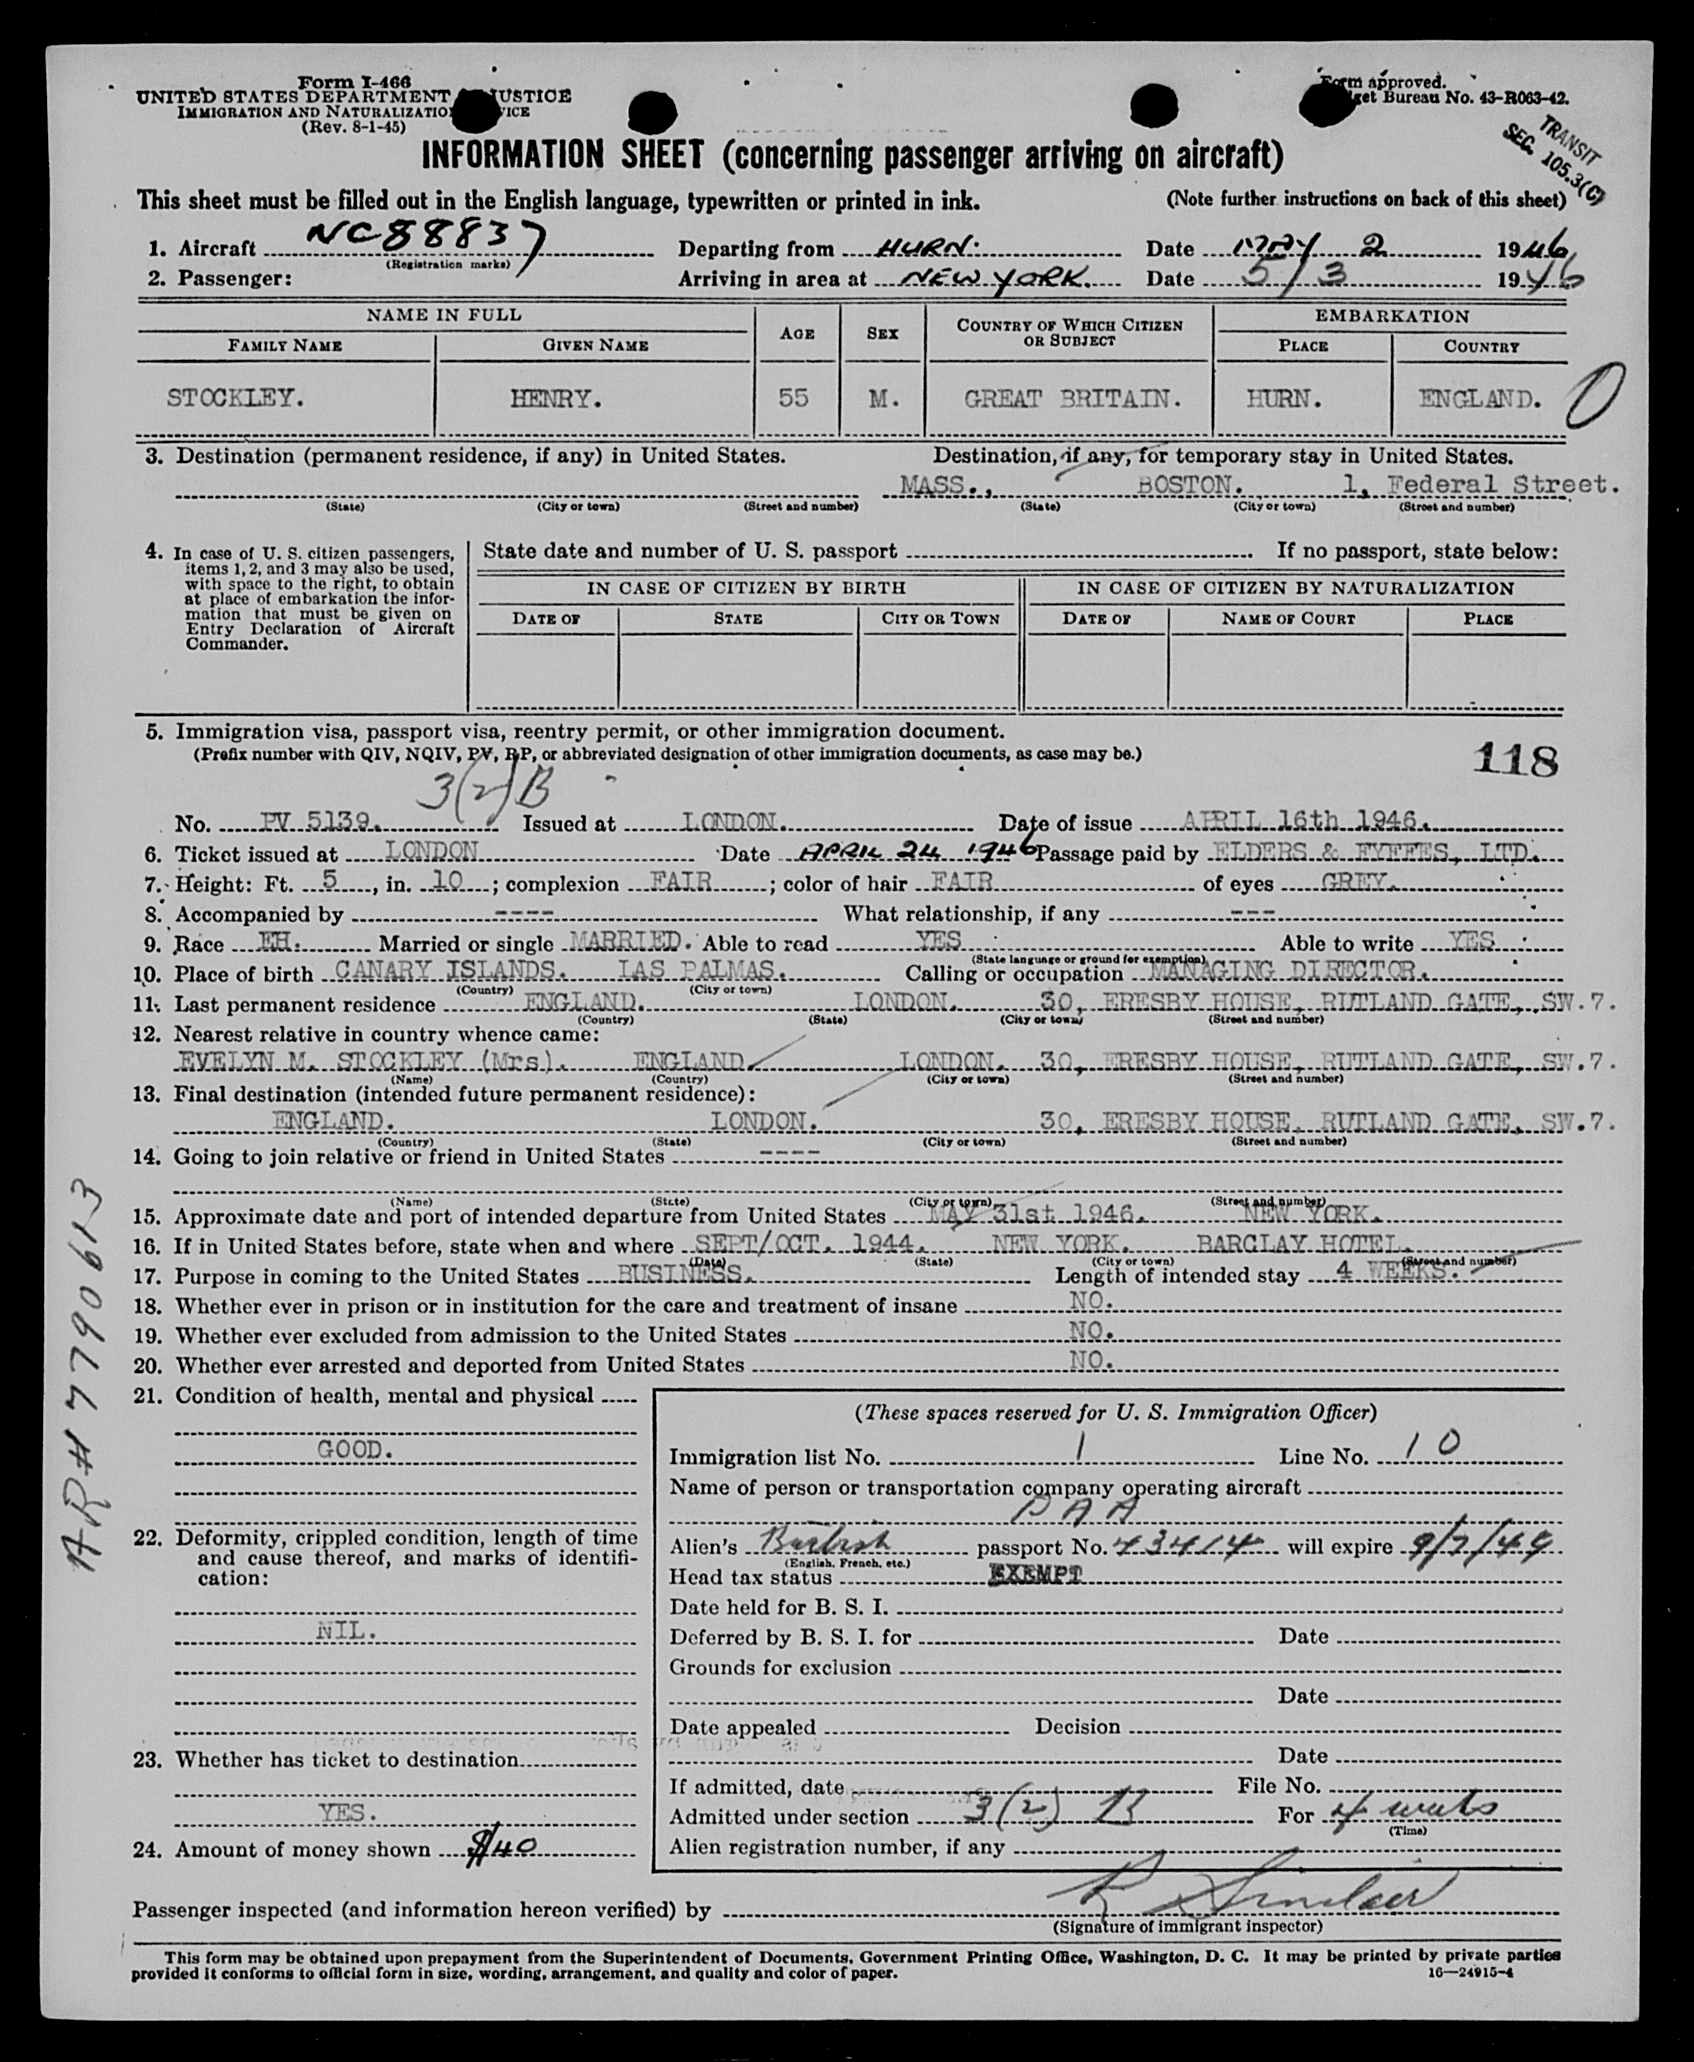 Form I-466
UNITED STATES DEPARTMENT JUSTICE
IMMIGRATION AND NATURALIZATION
(Rev. 8-1-45)
Form approved.
Bureau No. 43-R063-42.
TRANSIT
SEC. 105.3(C)
INFORMATION SHEET (concerning passenger arriving on aircraft)
This sheet must be filled out in the English language, typewritten or printed in ink. (Note further instructions on back of this sheet)
1. Aircraft NC88837 Departing from HURN. Date MAY 2 1946
(Registration marks)
2. Passenger: Arriving in area at NEW YORK. Date 5/3 1946
NAME IN FULL AGE SEX COUNTRY OF WHICH CITIZEN OR SUBJECT EMBARKATION
FAMILY NAME GIVEN NAME PLACE COUNTRY
STOCKLEY. HENRY. 55 M. GREAT BRITAIN. HURN. ENGLAND. 0
3. Destination (permanent residence, if any) in United States. Destination, if any, for temporary stay in United States.
MASS., BOSTON. 1, Federal Street.
(State) (City or town) (Street and number) (State) (City or town) (Street and number)
4. In case of U. S. citizen passengers, items 1, 2, and 3 may also be used, with space to the right, to obtain at place of embarkation the information that must be given on Entry Declaration of Aircraft Commander.
State date and number of U. S. passport If no passport, state below:
IN CASE OF CITIZEN BY BIRTH IN CASE OF CITIZEN BY NATURALIZATION
DATE OF STATE CITY OR TOWN DATE OF NAME OF COURT PLACE
5. Immigration visa, passport visa, reentry permit, or other immigration document.
(Prefix number with QIV, NQIV, PV, RP, or abbreviated designation of other immigration documents, as case may be.)
118
3(2)B
No. PV 5139. Issued at LONDON. Date of issue APRIL 16th 1946.
6. Ticket issued at LONDON Date APRIL 24 1946 Passage paid by ELDERS & FYFFES, LTD.
7. Height: Ft. 5, in. 10; complexion FAIR; color of hair FAIR of eyes GREY.
8. Accompanied by ---- What relationship, if any ---
9. Race EH. Married or single MARRIED. Able to read YES Able to write YES
(State language or ground for exemption)
10. Place of birth CANARY ISLANDS. LAS PALMAS. Calling or occupation MANAGING DIRECTOR.
(Country) (City or town)
11. Last permanent residence ENGLAND. LONDON. 30, ERESBY HOUSE, RUTLAND GATE, SW.7.
(Country) (State) (City or town) (Street and number)
12. Nearest relative in country whence came:
EVELYN M. STOCKLEY (Mrs). ENGLAND LONDON. 30, ERESBY HOUSE, RUTLAND GATE, SW.7.
(Name) (Country) (City or town) (Street and number)
13. Final destination (intended future permanent residence):
ENGLAND. LONDON. 30, ERESBY HOUSE, RUTLAND GATE, SW.7.
(Country) (State) (City or town) (Street and number)
14. Going to join relative or friend in United States ----
(Name) (State) (City or town) (Street and number)
15. Approximate date and port of intended departure from United States MAY 31st 1946. NEW YORK.
16. If in United States before, state when and where SEPT/OCT. 1944. NEW YORK. BARCLAY HOTEL.
(Date) (State) (City or town) (Street and number)
17. Purpose in coming to the United States BUSINESS. Length of intended stay 4 WEEKS.
18. Whether ever in prison or in institution for the care and treatment of insane NO.
19. Whether ever excluded from admission to the United States NO.
20. Whether ever arrested and deported from United States NO.
21. Condition of health, mental and physical
GOOD.
22. Deformity, crippled condition, length of time and cause thereof, and marks of identification:
NIL.
23. Whether has ticket to destination
YES.
24. Amount of money shown $40
AR# 7790613
(These spaces reserved for U. S. Immigration Officer)
Immigration list No. 1 Line No. 10
Name of person or transportation company operating aircraft
PAA
Alien's British passport No. 43414 will expire 9/7/49
(English, French, etc.)
Head tax status EXEMPT
Date held for B. S. I.
Deferred by B. S. I. for Date
Grounds for exclusion
Date
Date appealed Decision
Date
If admitted, date File No.
Admitted under section 3(2) B For 4 weeks
(Time)
Alien registration number, if any
Passenger inspected (and information hereon verified) by R Sinclair
(Signature of immigrant inspector)
This form may be obtained upon prepayment from the Superintendent of Documents, Government Printing Office, Washington, D. C. It may be printed by private parties
provided it conforms to official form in size, wording, arrangement, and quality and color of paper. 16—24915-4